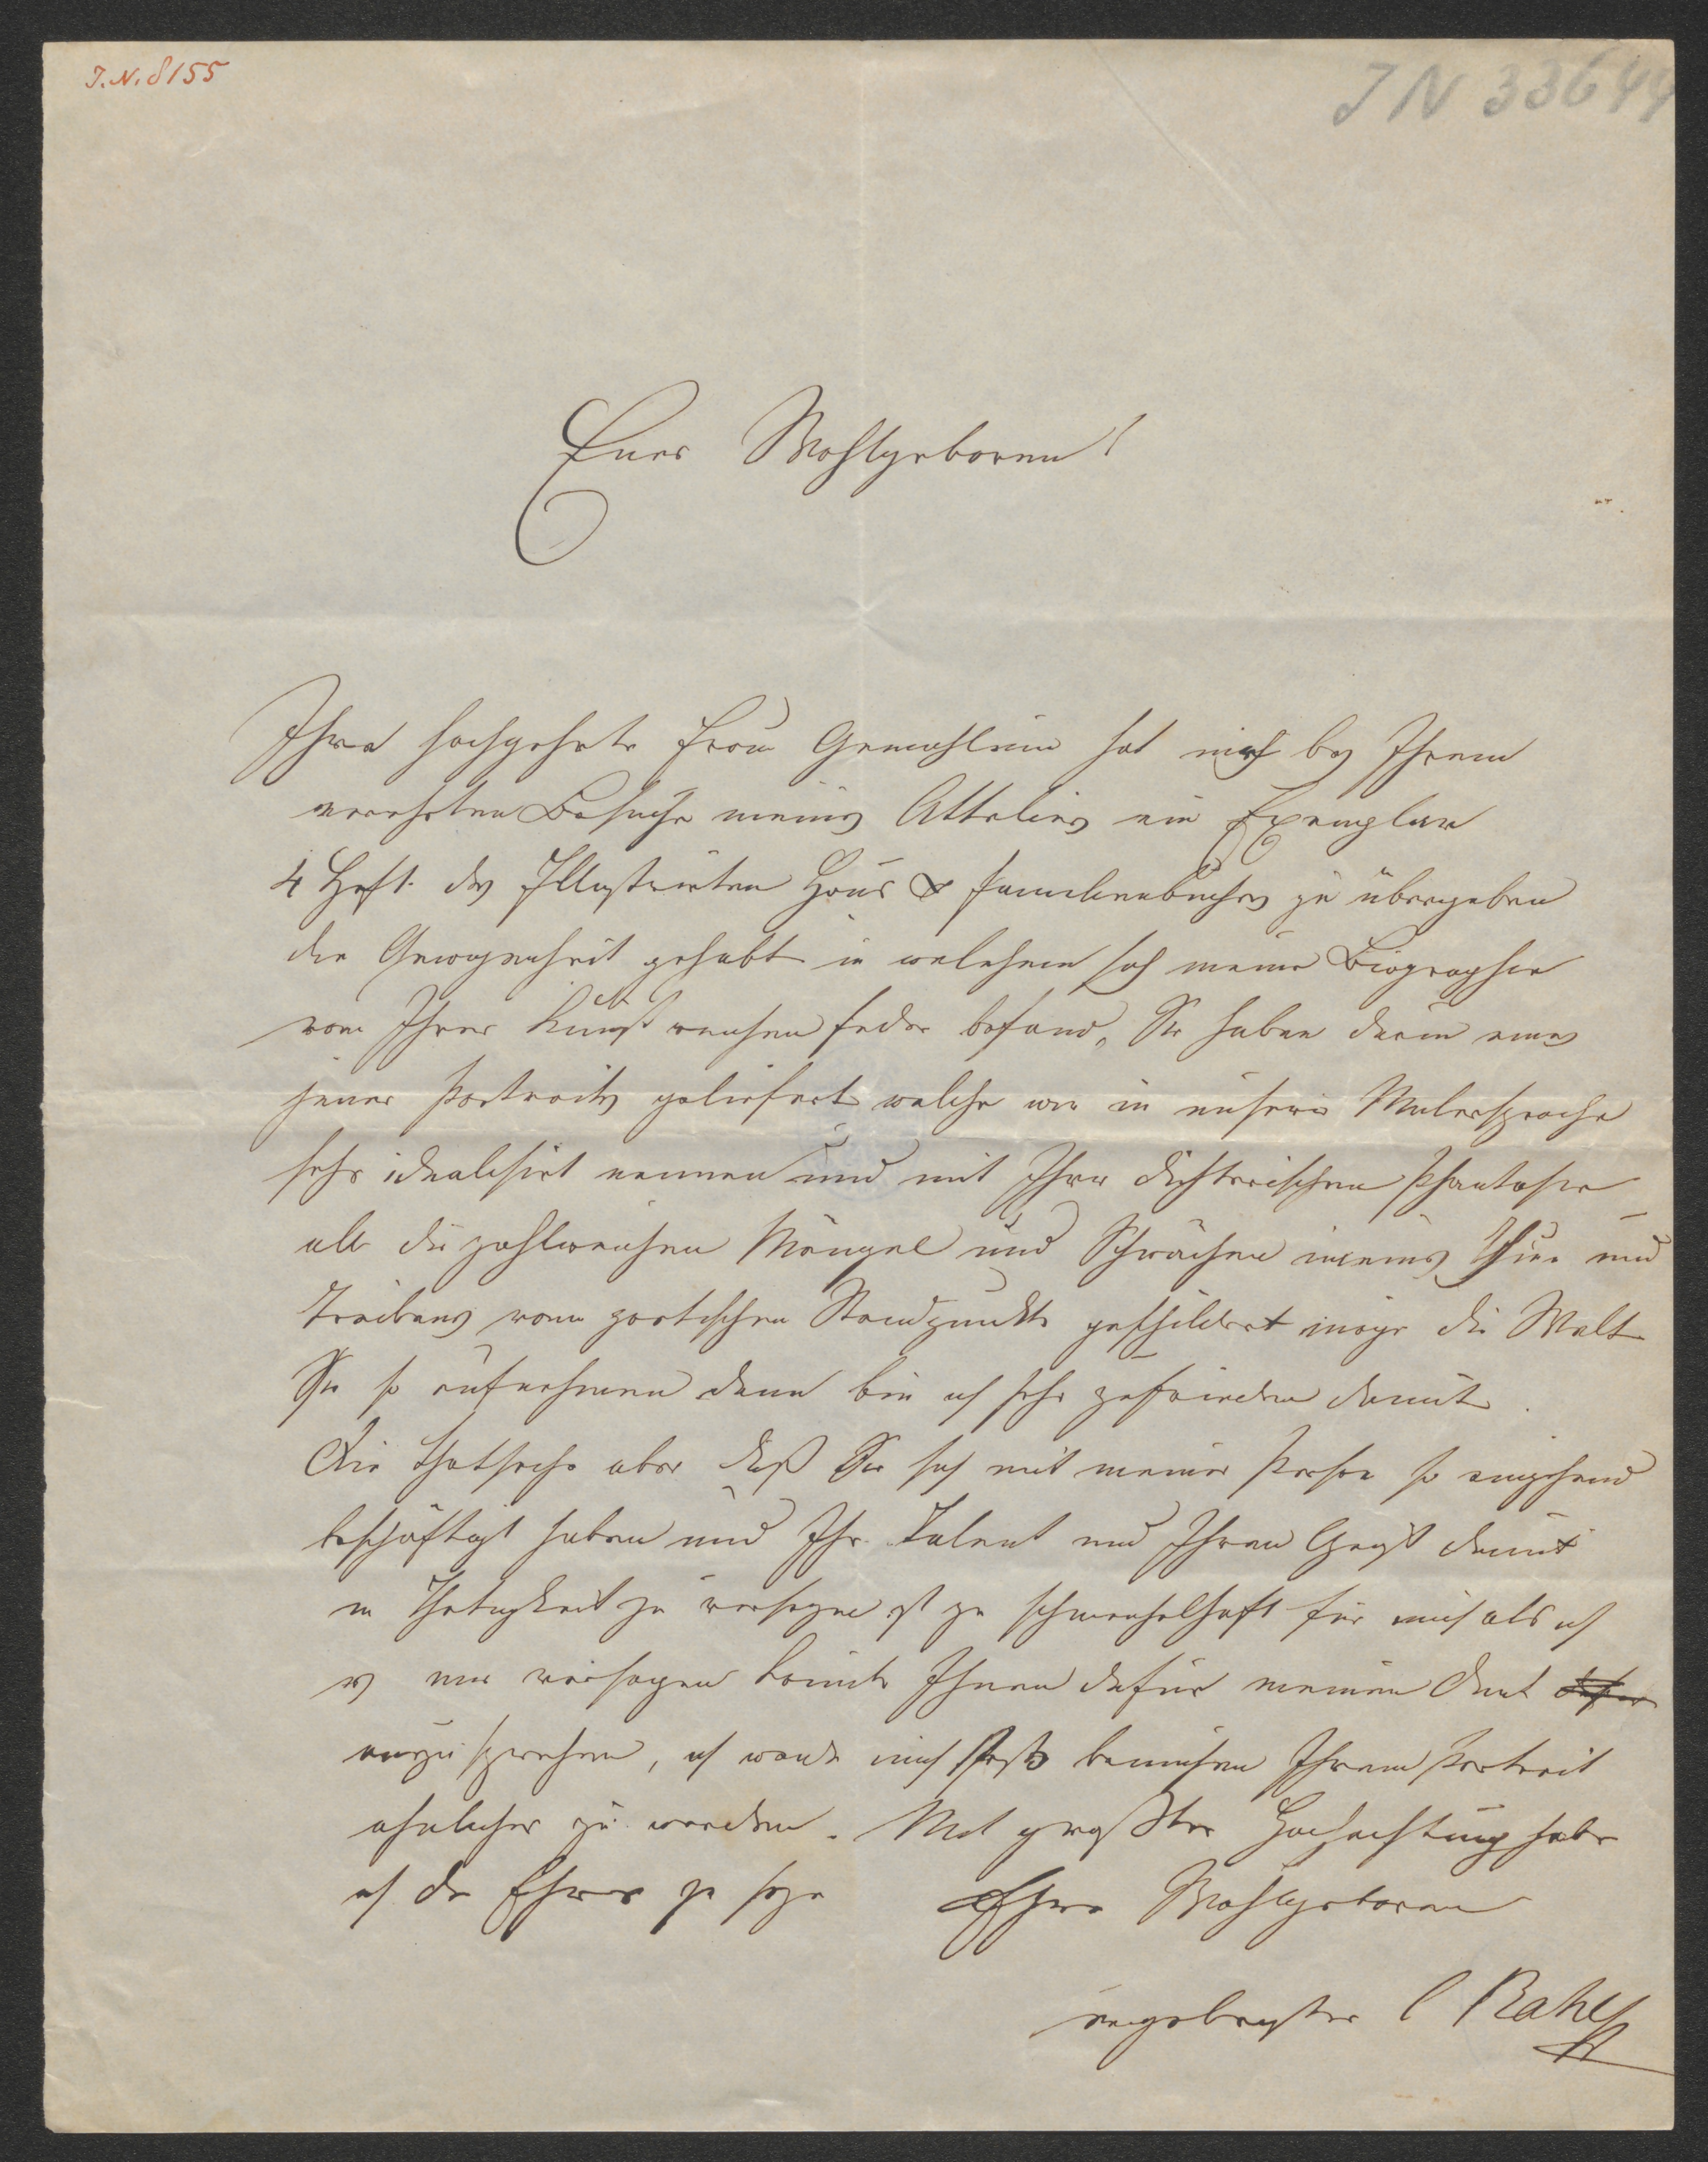 J. N. 8155
JN 33644
Euer Wohlgeboren!
Ihre hochgehrte Frau Gemahlinn hat mich bey Ihrem
verehrten Besuche meines Atteliers ein Exemplar
4 Heft. des Illustrirten Haus & Familienbuches zu übergeben
die Gewogenheit gehabt in welchem sich meine Biographie
von Ihrer Kunst reichen Feder befand, Sie haben darin eines
jener Portraits geliefert welche wir in unserer Malersprache
sehr idealisirt nennen und mit Ihrer dichterischen Phantasie
all die zahlreichen Mängel und Schwächen meines Thun und
Treibens vom poetischen Standpunkte geschildert möge die Welt
Sie so aufnehmen dann bin ich sehr zufrieden damit.
Die Thatsache aber daß Sie sich mit meiner Person so eingehend
beschäftigt haben und Ihr Talent und Ihren Geist damit
in Thätigkeit zu versezen ist zu schmeichelhaft für mich als ich
es mir versagen könnte Ihnen dafür meinen Dank
auszusprechen, ich werde mich stets bemühen Ihrem Portrait
ähnlicher zu werden. Mit größter Hochachtung habe
ich die Ehre zu seyn Euer Wohlgeboren
ergebenster C Rahl